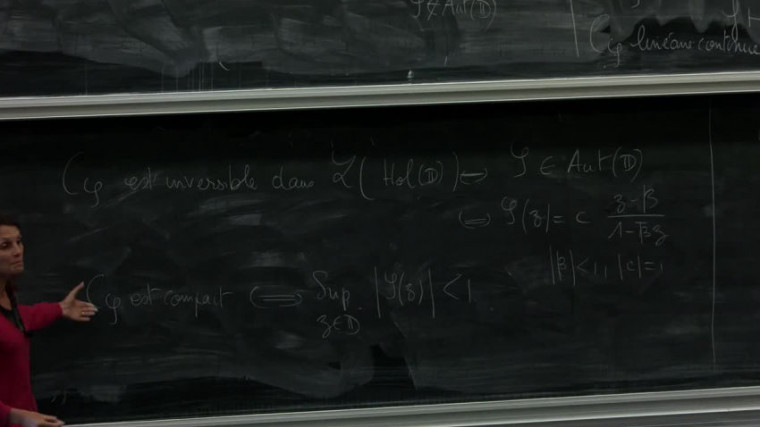 φ ∉ Aut(𝔻)
C_φ linéaire continue
C_φ est inversible dans ℒ(Hol(𝔻)) ⇔ φ ∈ Aut(𝔻)
⇔ φ(z) = c (z-β)/(1-β̄z)
|β|<1, |c|=1
C_φ est compact ⇔ Sup_{z∈𝔻} |φ(z)| < 1